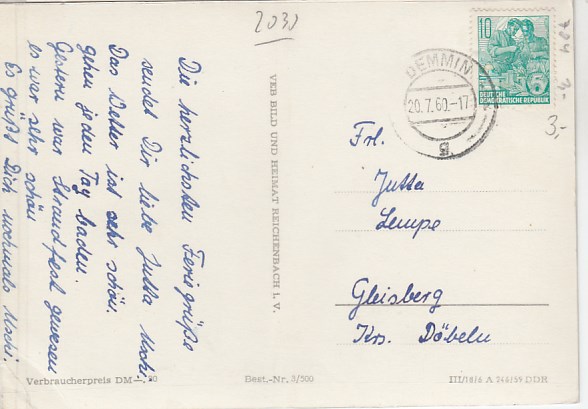 2030
Die herzlichsten Feriengrüße
sendet Dir liebe Jutta Uschi.
Das Wetter ist sehr schön.
gehen jeden Tag baden.
Gestern war Strandfest gewesen
es war sehr schön
Es grüßt Dich nochmals Uschi.
Verbraucherpreis DM —,20
VEB BILD UND HEIMAT REICHENBACH I. V.
Best.-Nr. 3/500
10
DEUTSCHE
DEMOKRATISCHE REPUBLIK
DEMMIN
20.7.60.-17
g
704
3,-
Frl.
Jutta
Lempe
Gleisberg
Krs. Döbeln
III/18/6 A 246/59 DDR